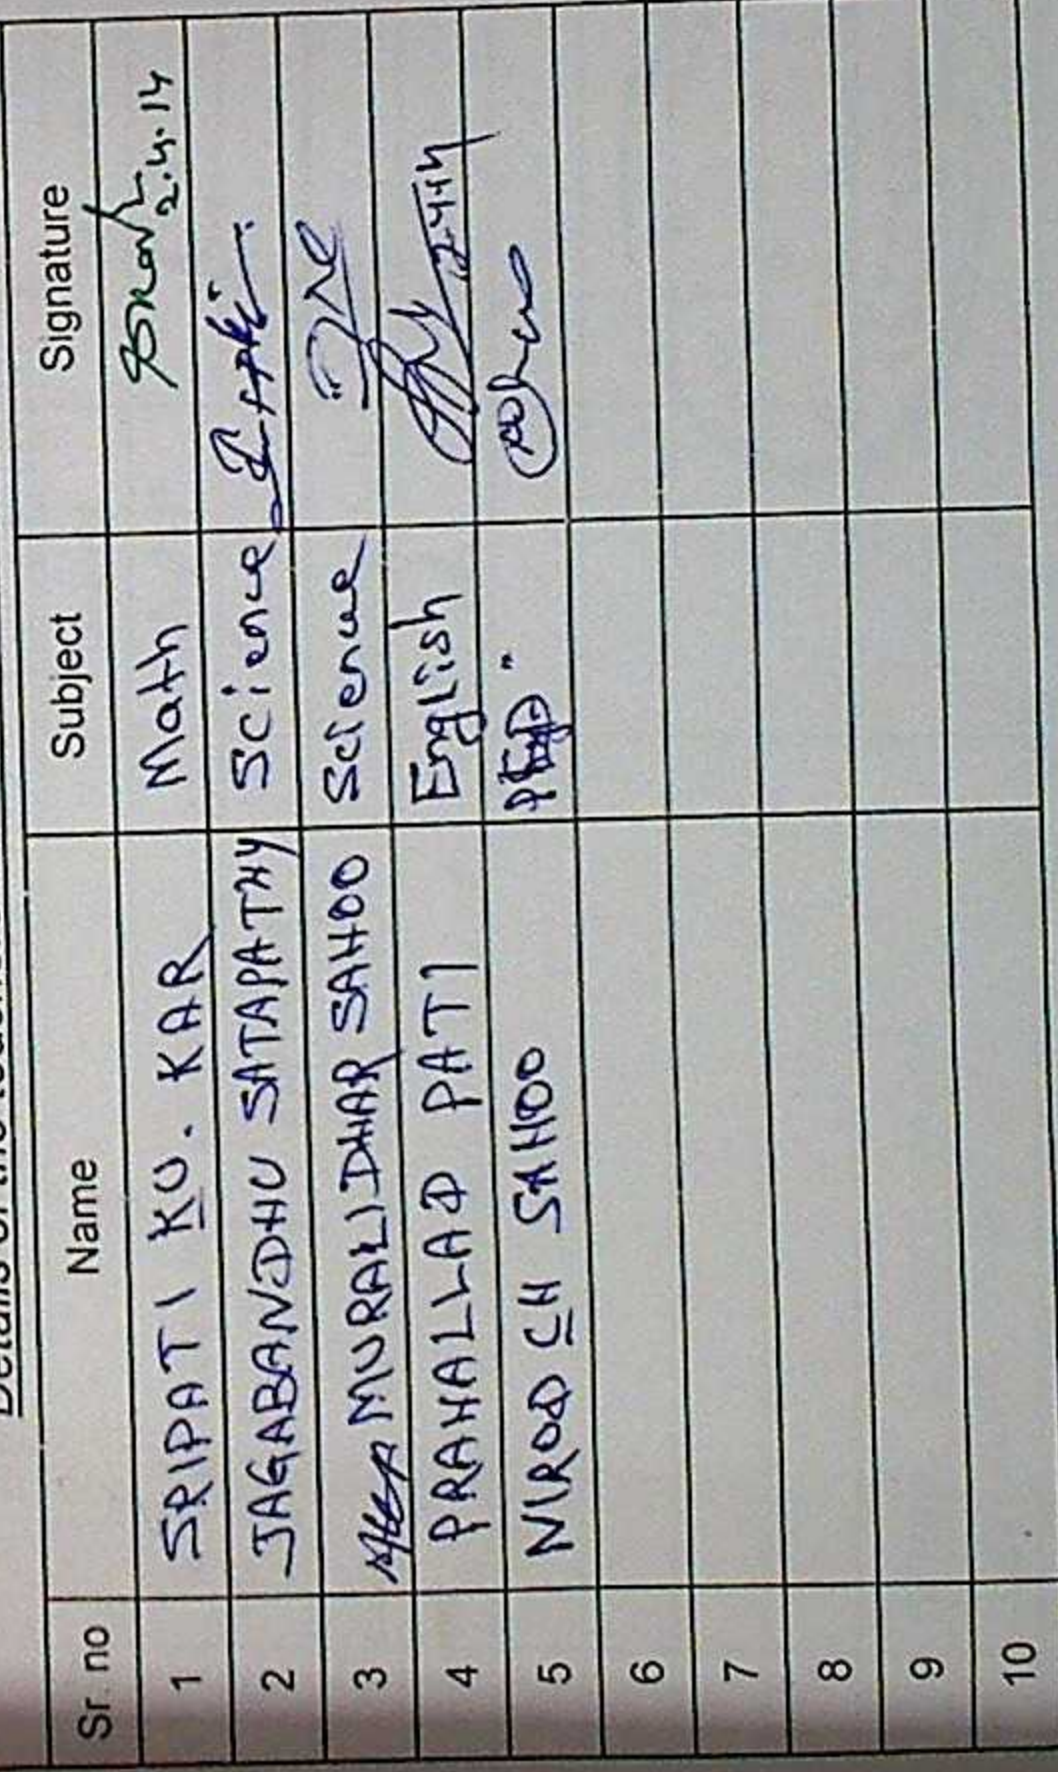 Details of the
Sr. no Name Subject Signature
1 SRIPATI KU. KAR Math 2.4.14
2 JAGABANDHU SATAPATHY Science
3 MURALIDHAR SAHOO Science
4 PRAHALLAD PATI English 2.4.14
5 NIROD CH SAHOO "
6
7
8
9
10